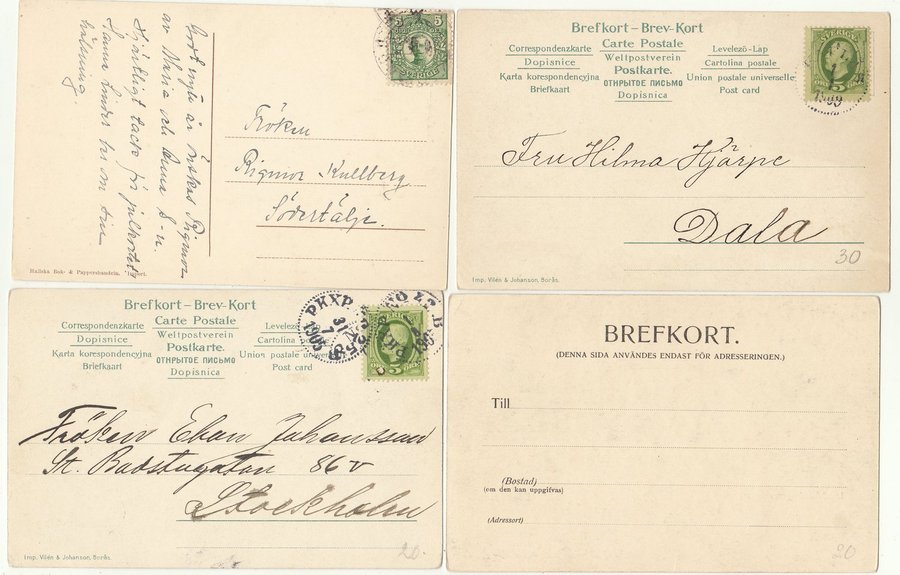 5
SVERIGE
Gott nytt år önskas Rigmor
av Maria och Anna
Hjärtligt tack för julkortet
Fröken
Rigmor Kullberg
Södertälje.
Hallska Bok- & Pappershandeln,
Brefkort–Brev-Kort
Correspondenzkarte
Carte Postale
Levelező-Lap
Dopisnice
Weltpostverein
Cartolina postale
Karta korespondencyjna
Postkarte.
Union postale universelle
Briefkaart
ОТКРЫТОЕ ПИСЬМО
Post card
Dopisnica
SVERIGE
5
Fru Hilma Hjärpe
Dala
30
Imp. Vilén & Johanson, Borås.
Brefkort–Brev-Kort
Correspondenzkarte
Carte Postale
Levelező
Dopisnice
Weltpostverein
Cartolina
Karta korespondencyjna
Postkarte.
Union postale univ
Briefkaart
ОТКРЫТОЕ ПИСЬМО
Post card
Dopisnica
PKXP
31
7
1903
5
Fröken Eban Johansson
St. Badstugatan 86 v
Stockholm
20.
Imp. Vilén & Johanson, Borås.
BREFKORT.
(DENNA SIDA ANVÄNDES ENDAST FÖR ADRESSERINGEN.)
Till
(Bostad)
(om den kan uppgifvas)
(Adressort)
20